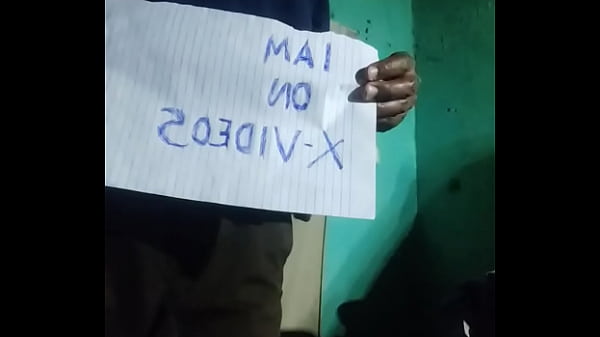 I AM
ON
X-VIDEOS